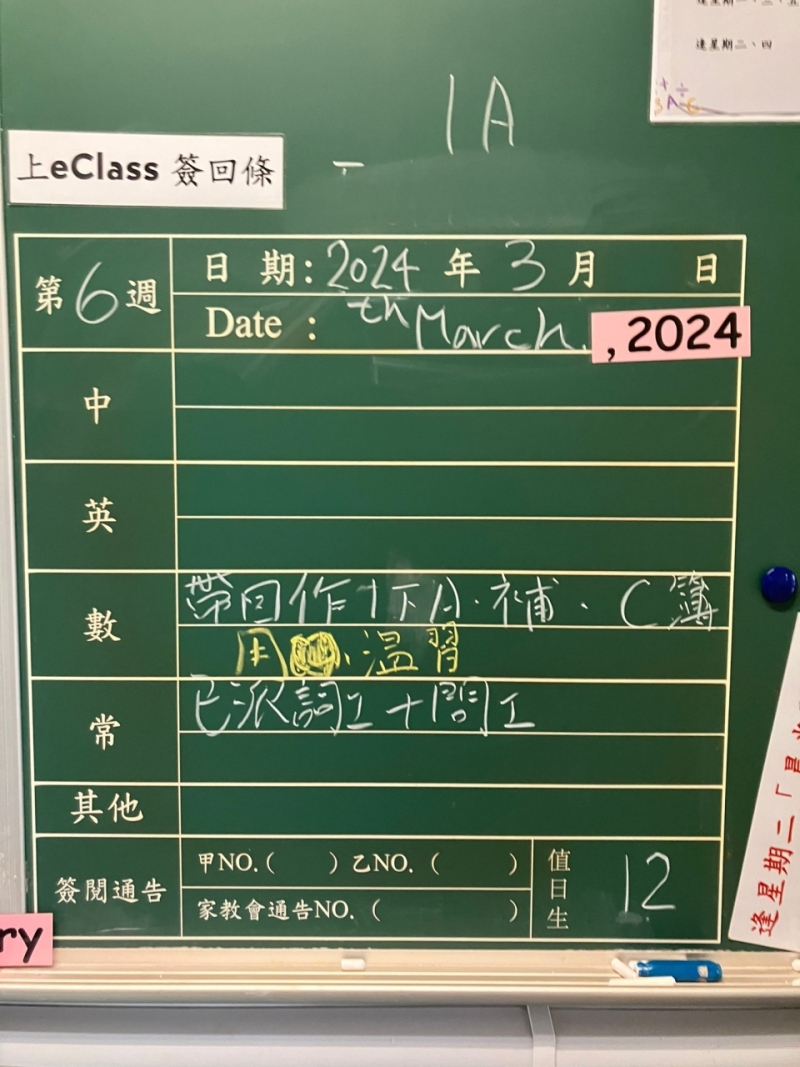 逢星期二、四
1A
上eClass 簽回條
第6週
日期:2024年3月 日
Date : th March. , 2024
中
英
數
帶回作1下A.補.C簿
温習
常
已派詞工+問工
其他
簽閱通告
甲NO.( )乙NO.( )
家教會通告NO.( )
值日生
12
逢星期二「
ry